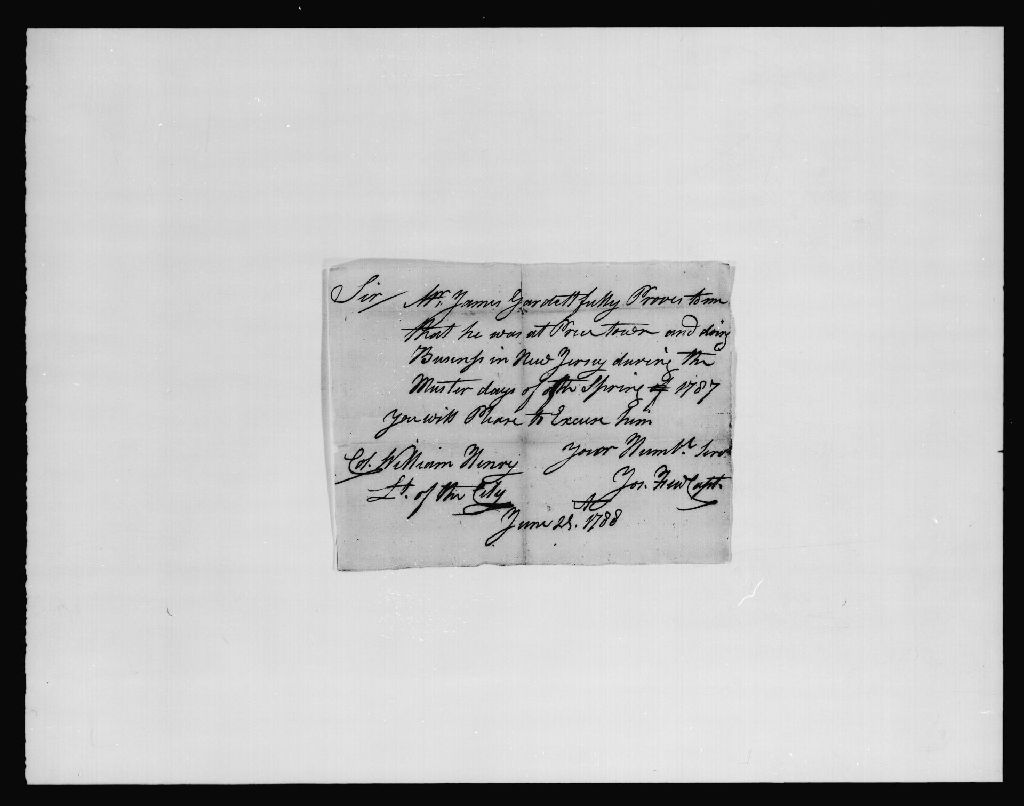 Sir Mr. James Gardett fully Proves to me
that he was at Princetown and doing
Business in New Jersey during the
Muster days of the Spring of 1787
you will Please to Excuse him
Your Humbl. Servt
Col. William Henry
Jos. Few Capt.
Lt. of the City
June 28. 1788